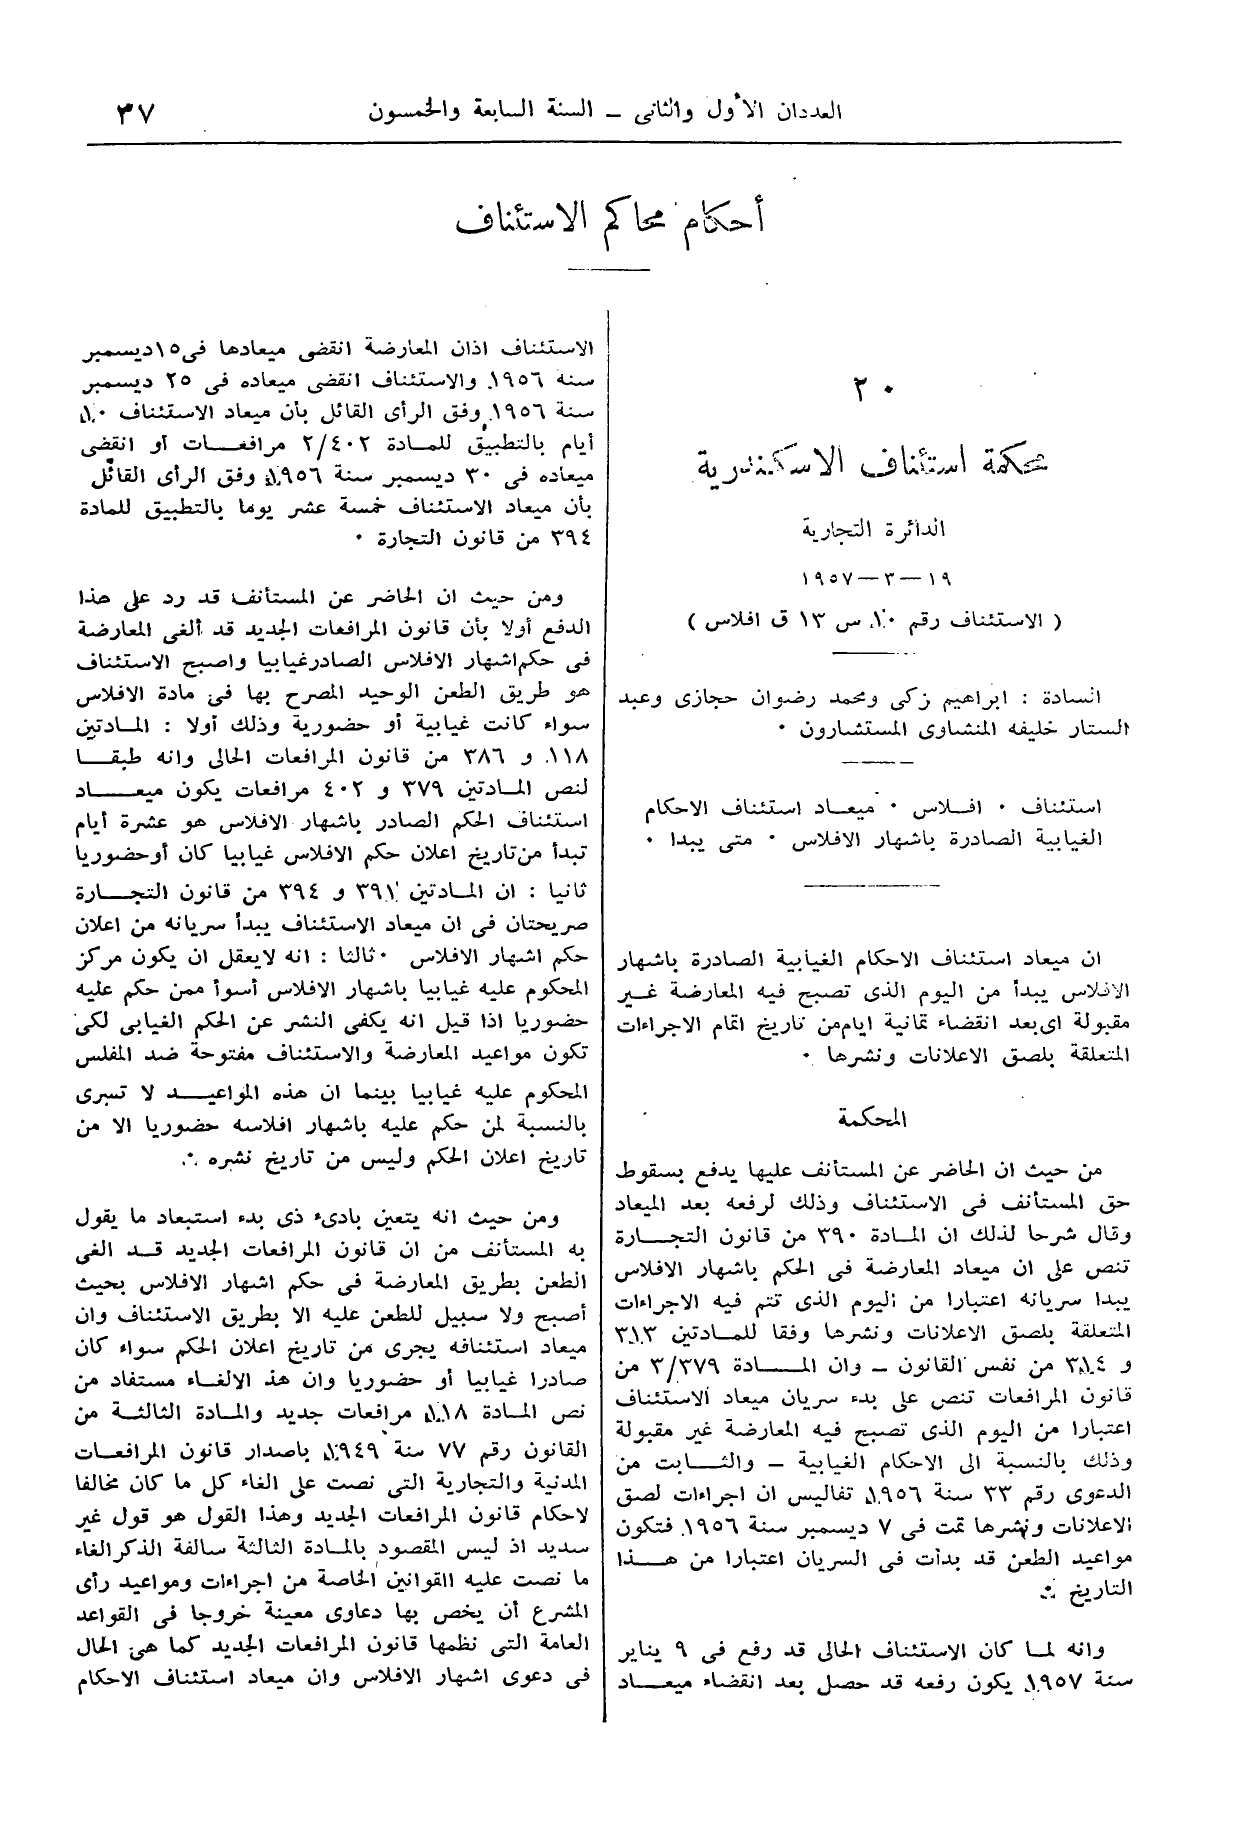 العددان الأول والثانى – السنة السابعة والخمسون
٣٧
أحكام محاكم الاستئناف
٢٠
محكمة استئناف الاسكندرية
الدائرة التجارية
١٩ – ٣ – ١٩٥٧
( الاستئناف رقم ١٠ س ١٣ ق افلاس )
السادة : ابراهيم زكى ومحمد رضوان حجازى وعبد
الستار خليفه المنشاوى المستشارون ٠
استئناف ٠ افلاس ٠ ميعاد استئناف الاحكام
الغيابية الصادرة باشهار الافلاس ٠ متى يبدا ٠
ان ميعاد استئناف الاحكام الغيابية الصادرة باشهار
الافلاس يبدأ من اليوم الذى تصبح فيه المعارضة غير
مقبولة اى بعد انقضاء ثمانية ايام من تاريخ اتمام الاجراءات
المتعلقة بلصق الاعلانات ونشرها ٠
المحكمة
من حيث ان الحاضر عن المستأنف عليها يدفع بسقوط
حق المستأنف فى الاستئناف وذلك لرفعه بعد الميعاد
وقال شرحا لذلك ان المادة ٣٩٠ من قانون التجارة
تنص على ان ميعاد المعارضة فى الحكم باشهار الافلاس
يبدا سريانه اعتبارا من اليوم الذى تتم فيه الاجراءات
المتعلقة بلصق الاعلانات ونشرها وفقا للمادتين ٣١٣
و ٣١٤ من نفس القانون – وان المادة ٣/٣٧٩ من
قانون المرافعات تنص على بدء سريان ميعاد الاستئناف
اعتبارا من اليوم الذى تصبح فيه المعارضة غير مقبولة
وذلك بالنسبة الى الاحكام الغيابية – والثابت من
الدعوى رقم ٣٣ سنة ١٩٥٦ تفاليس ان اجراءات لصق
الاعلانات ونشرها تمت فى ٧ ديسمبر سنة ١٩٥٦ فتكون
مواعيد الطعن قد بدأت فى السريان اعتبارا من هذا
التاريخ ٠
وانه لما كان الاستئناف الحالى قد رفع فى ٩ يناير
سنة ١٩٥٧ يكون رفعه قد حصل بعد انقضاء ميعاد
الاستئناف اذان المعارضة انقضى ميعادها فى ١٥ ديسمبر
سنة ١٩٥٦ والاستئناف انقضى ميعاده فى ٢٥ ديسمبر
سنة ١٩٥٦ وفق الرأى القائل بأن ميعاد الاستئناف ١٠
أيام بالتطبيق للمادة ٢/٤٠٢ مرافعات أو انقضى
ميعاده فى ٣٠ ديسمبر سنة ١٩٥٦ وفق الرأى القائل
بأن ميعاد الاستئناف خمسة عشر يوما بالتطبيق للمادة
٣٩٤ من قانون التجارة ٠
ومن حيث ان الحاضر عن المستأنف قد رد على هذا
الدفع أولا بأن قانون المرافعات الجديد قد ألغى المعارضة
فى حكم اشهار الافلاس الصادر غيابيا واصبح الاستئناف
هو طريق الطعن الوحيد المصرح بها فى مادة الافلاس
سواء كانت غيابية أو حضورية وذلك أولا : المادتين
١١٨ و ٣٨٦ من قانون المرافعات الحالى وانه طبقا
لنص المادتين ٣٧٩ و ٤٠٢ مرافعات يكون ميعاد
استئناف الحكم الصادر باشهار الافلاس هو عشرة أيام
تبدأ من تاريخ اعلان حكم الافلاس غيابيا كان أو حضوريا
ثانيا : ان المادتين ٣٩١ و ٣٩٤ من قانون التجارة
صريحتان فى ان ميعاد الاستئناف يبدأ سريانه من اعلان
حكم اشهار الافلاس ٠ ثالثا : انه لايعقل ان يكون مركز
المحكوم عليه غيابيا باشهار الافلاس أسوأ ممن حكم عليه
حضوريا اذا قيل انه يكفى النشر عن الحكم الغيابى لكى
تكون مواعيد المعارضة والاستئناف مفتوحة ضد المفلس
المحكوم عليه غيابيا بينما ان هذه المواعيد لا تسرى
بالنسبة لمن حكم عليه باشهار افلاسه حضوريا الا من
تاريخ اعلان الحكم وليس من تاريخ نشره ٠
ومن حيث انه يتعين بادىء ذى بدء استبعاد ما يقول
به المستأنف من ان قانون المرافعات الجديد قد الغى
الطعن بطريق المعارضة فى حكم اشهار الافلاس بحيث
أصبح ولا سبيل للطعن عليه الا بطريق الاستئناف وان
ميعاد استئنافه يجرى من تاريخ اعلان الحكم سواء كان
صادرا غيابيا أو حضوريا وان هذ الالغاء مستفاد من
نص المادة ١١٨ مرافعات جديد والمادة الثالثة من
القانون رقم ٧٧ سنة ١٩٤٩ باصدار قانون المرافعات
المدنية والتجارية التى نصت على الغاء كل ما كان مخالفا
لاحكام قانون المرافعات الجديد وهذا القول هو قول غير
سديد اذ ليس المقصود بالمادة الثالثة سالفة الذكر الغاء
ما نصت عليه القوانين الخاصة من اجراءات ومواعيد رأى
المشرع أن يخص بها دعاوى معينة خروجا فى القواعد
العامة التى نظمها قانون المرافعات الجديد كما هى الحال
فى دعوى اشهار الافلاس وان ميعاد استئناف الاحكام